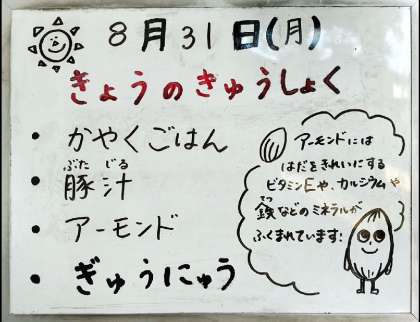 8月31日(月)
きょうのきゅうしょく
• かやくごはん
ぶた じる
• 豚汁
• アーモンド
• ぎゅうにゅう
アーモンドには
はだをきれいにする
ビタミンEや、カルシウムや
てつ
鉄などのミネラルが
ふくまれています!